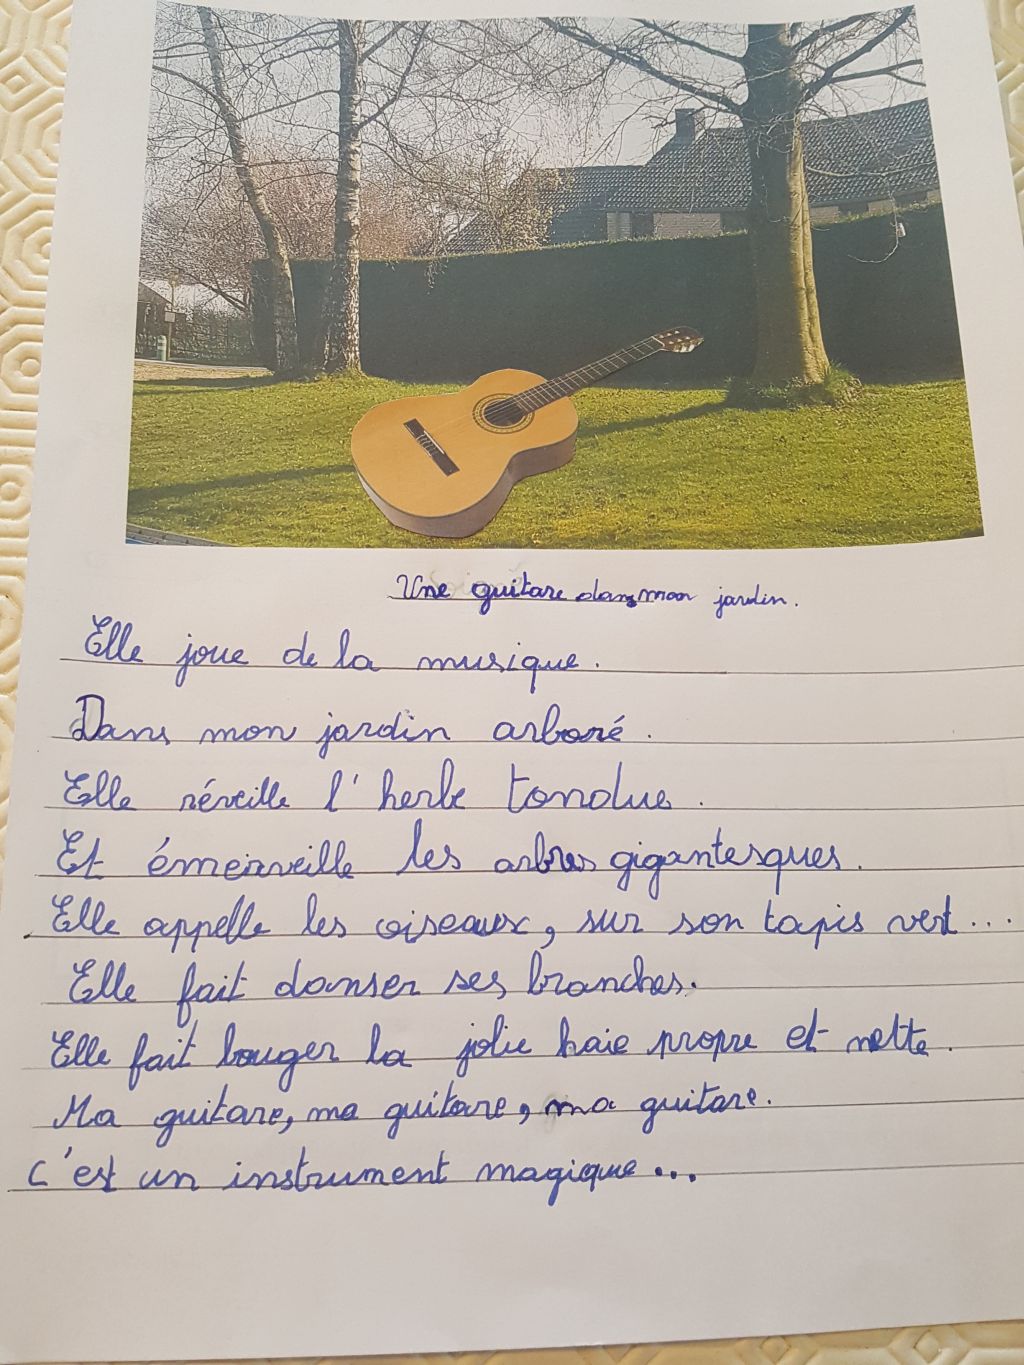 Une guitare dans mon jardin.
Elle joue de la musique.
Dans mon jardin arboré.
Elle réveille l'herbe tondue.
Et émerveille les arbres gigantesques.
Elle appelle les oiseaux, sur son tapis vert...
Elle fait danser ses branches.
Elle fait bouger la jolie haie propre et nette.
Ma guitare, ma guitare, ma guitare.
C'est un instrument magique...